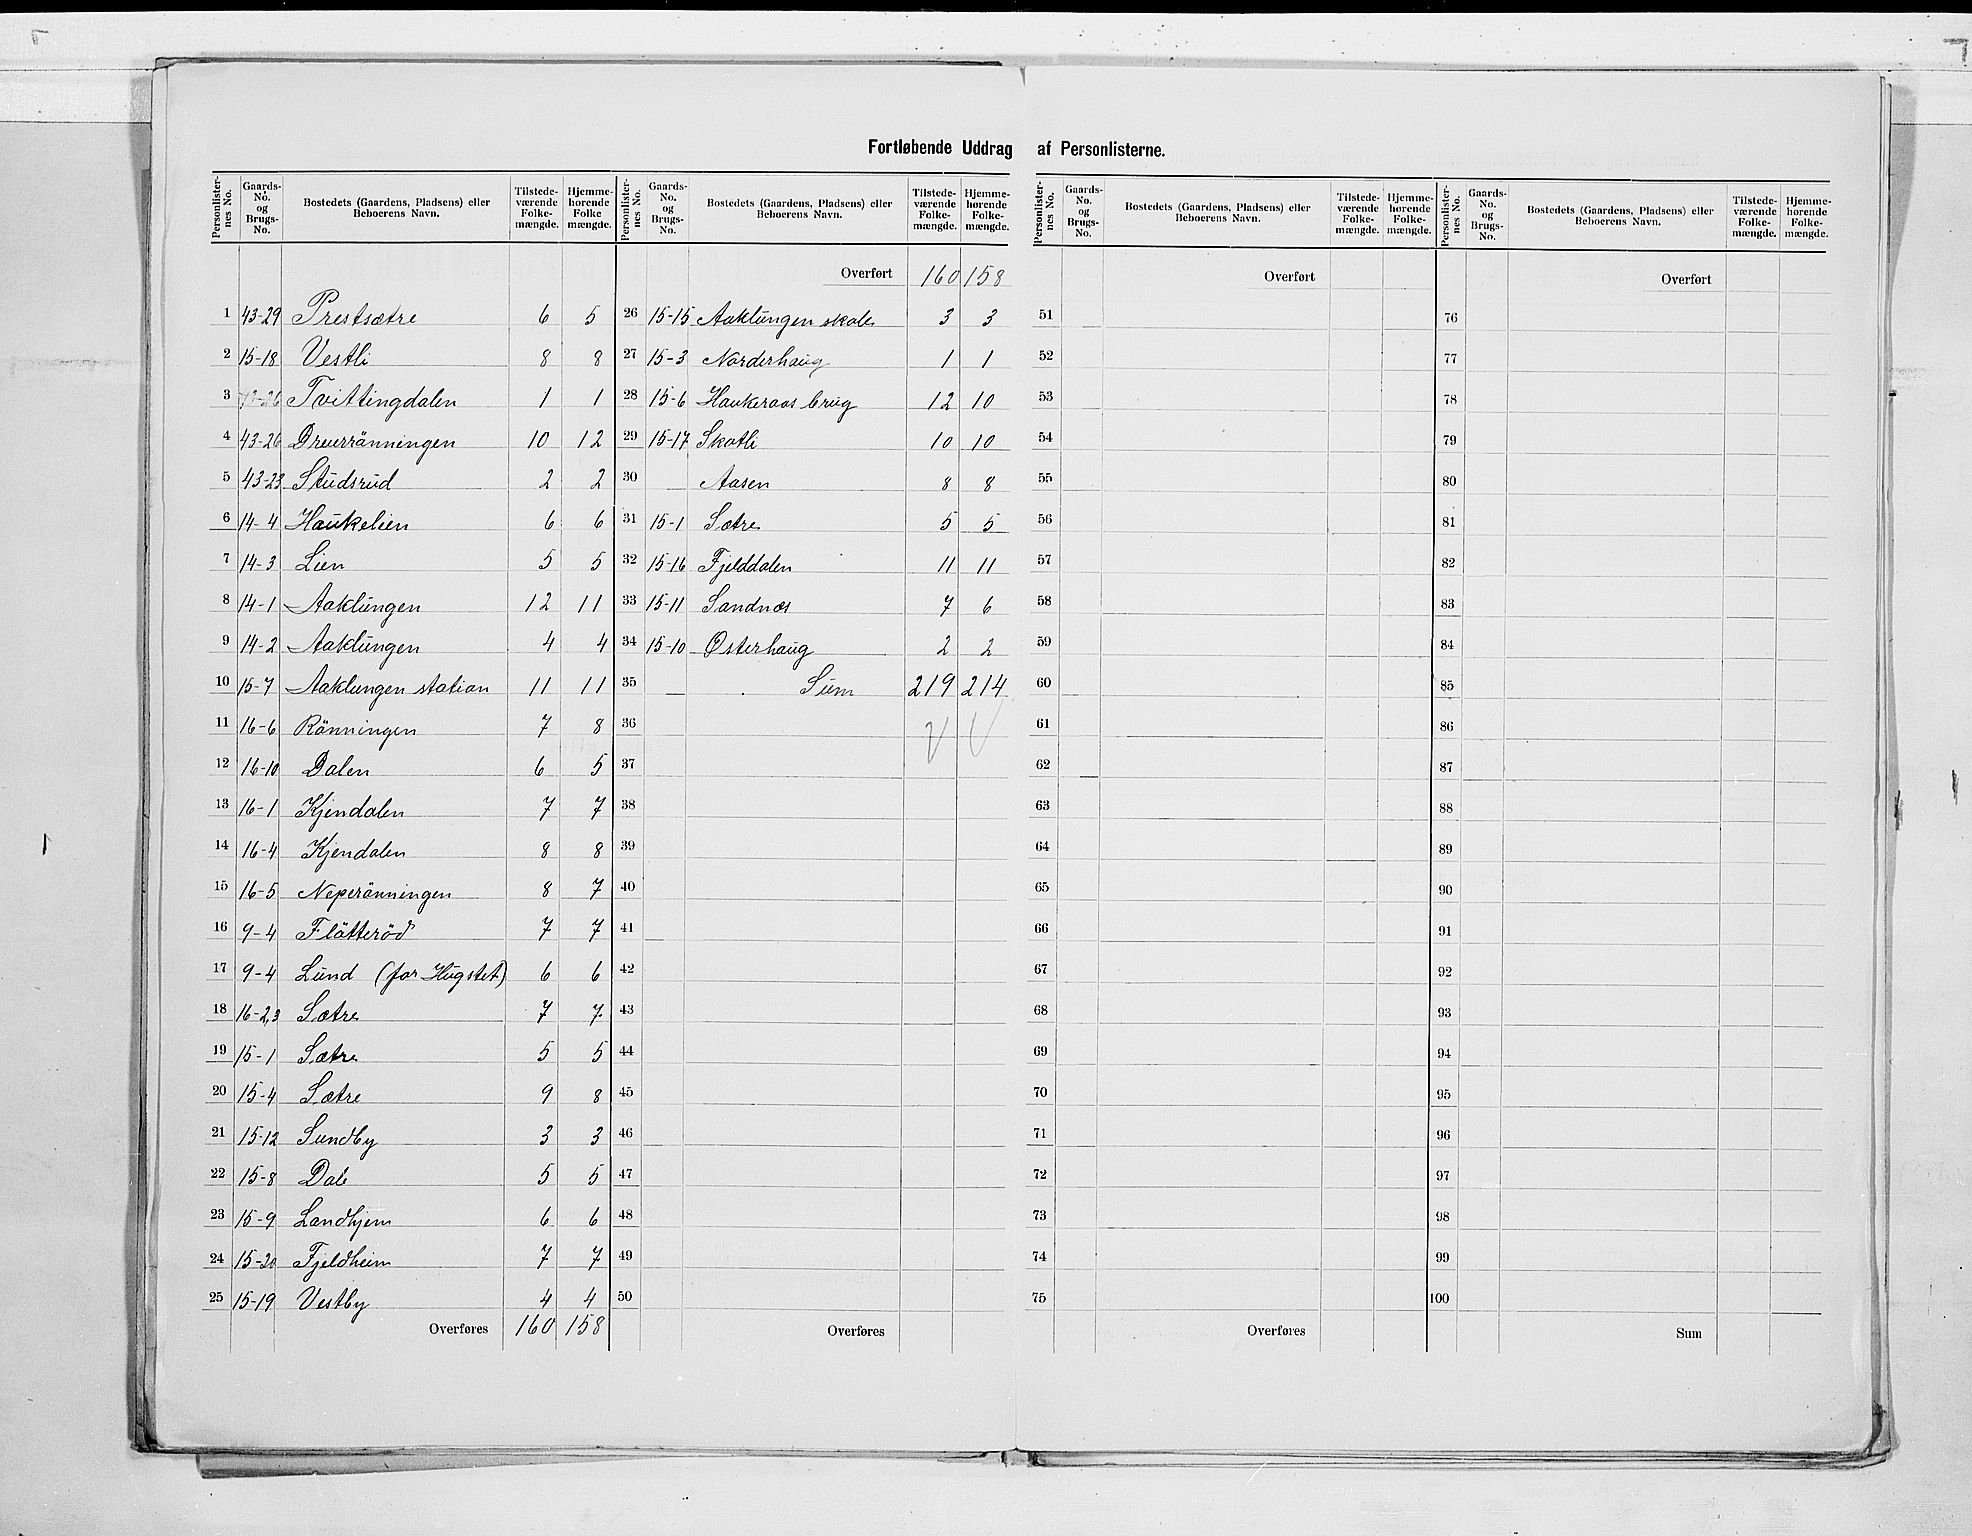 Fortløbende Uddrag af Personlisterne.
Personlister-nes No. | Gaards-No. og Brugs-No. | Bostedets (Gaardens, Pladsens) eller Beboerens Navn. | Tilstede-værende Folke-mængde. | Hjemme-hørende Folke mængde.
1 43-29 Prestsætre 6 5
2 15-18 Vestli 8 8
3 Tvittingdalen 1 1
4 43-26 Dreverrönningen 10 12
5 43-23 Studsrud 2 2
6 14-4 Haukelien 6 6
7 14-3 Lien 5 5
8 14-1 Aaklungen 12 11
9 14-2 Aaklungen 4 4
10 15-7 Aaklungen station 11 11
11 16-6 Rönningen 7 8
12 16-10 Dalen 6 5
13 16-1 Kjendalen 7 7
14 16-4 Kjendalen 8 8
15 16-5 Neperönningen 8 7
16 9-4 Flåtteröd 7 7
17 9-4 Lund (for Hugstet) 6 6
18 16-2,3 Sætre 7 7
19 15-1 Sætre 5 5
20 15-4 Sætre 9 8
21 15-12 Sundby 3 3
22 15-8 Dale 5 5
23 15-9 Landhjem 6 6
24 15-20 Fjeldheim 7 7
25 15-19 Vestby 4 4
Overføres 160 158
Personlister-nes No. | Gaards-No. og Brugs-No. | Bostedets (Gaardens, Pladsens) eller Beboerens Navn. | Tilstede-værende Folke-mængde. | Hjemme-hørende Folke-mængde.
Overført 160 158
26 15-15 Aaklungen skole 3 3
27 15-3 Norderhaug 1 1
28 15-6 Haukeraas brug 12 10
29 15-17 Skotli 10 10
30 Aasen 8 8
31 15-1 Sætre 5 5
32 15-16 Fjelddalen 11 11
33 15-11 Sandnæs 7 6
34 15-10 Østerhaug 2 2
35 Sum 219 214
36
37
38
39
40
41
42
43
44
45
46
47
48
49
50
Overføres
Personlister-nes No. | Gaards-No. og Brugs-No. | Bostedets (Gaardens, Pladsens) eller Beboerens Navn. | Tilstede-værende Folke-mængde. | Hjemme-hørende Folke-mængde.
Overført
51
52
53
54
55
56
57
58
59
60
61
62
63
64
65
66
67
68
69
70
71
72
73
74
75
Overføres
Personlister-nes No. | Gaards-No. og Brugs-No. | Bostedets (Gaardens, Pladsens) eller Beboerens Navn. | Tilstede-værende Folke-mængde. | Hjemme-hørende Folke-mængde.
Overført
76
77
78
79
80
81
82
83
84
85
86
87
88
89
90
91
92
93
94
95
96
97
98
99
100
Sum